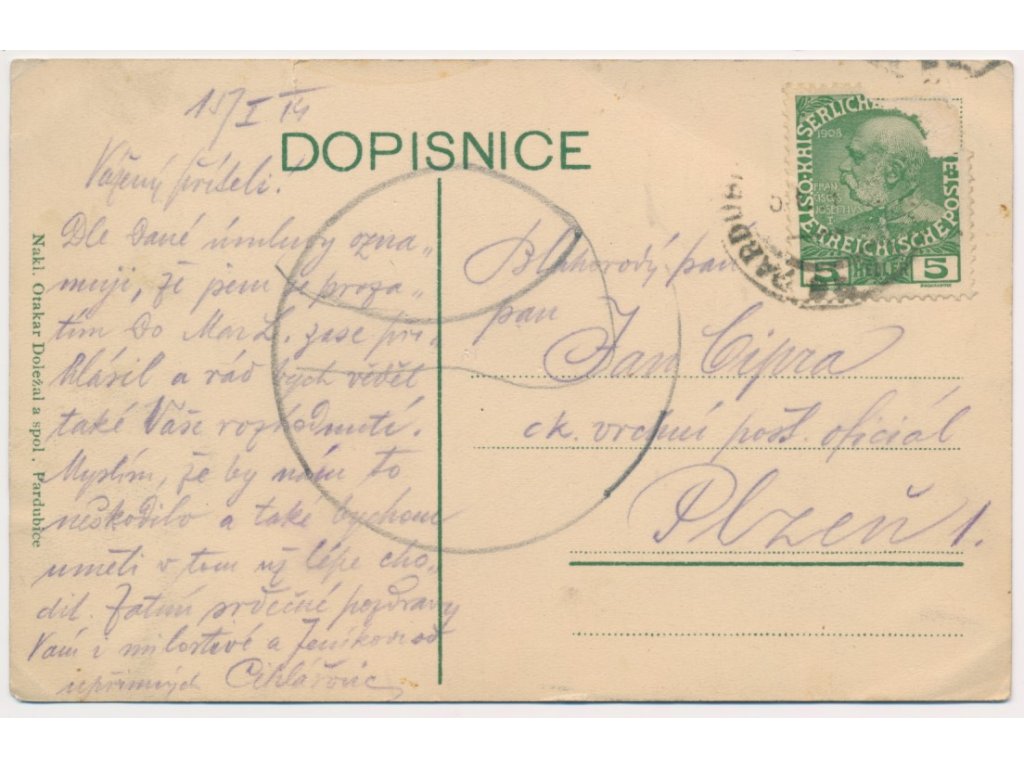 15/I 14
DOPISNICE
Vážený příteli!
Dle dané úmluvy ozna„
muji, že jsem se proza„
tím do Mar L. zase při„
hlásil a rád bych věděl
také Vaše rozhodnutí.
Myslím, že by nám to
neškodilo a také bychom
uměli v tom už lépe cho„
dit. Zatím srdečné pozdravy
Vám i milostivé a Jeníkovi od
upřímných
Blahorodý pan
pan
Jan Cipra
ck. vrchní pošt. oficiál
Plzeň 1.
Nakl. Otakar Doležal a spol., Pardubice
KAISERLICHE
1908
FRANCISCUS JOSEPH
ÖSTERREICHISCHE POST
5 HELLER 5
PARDU